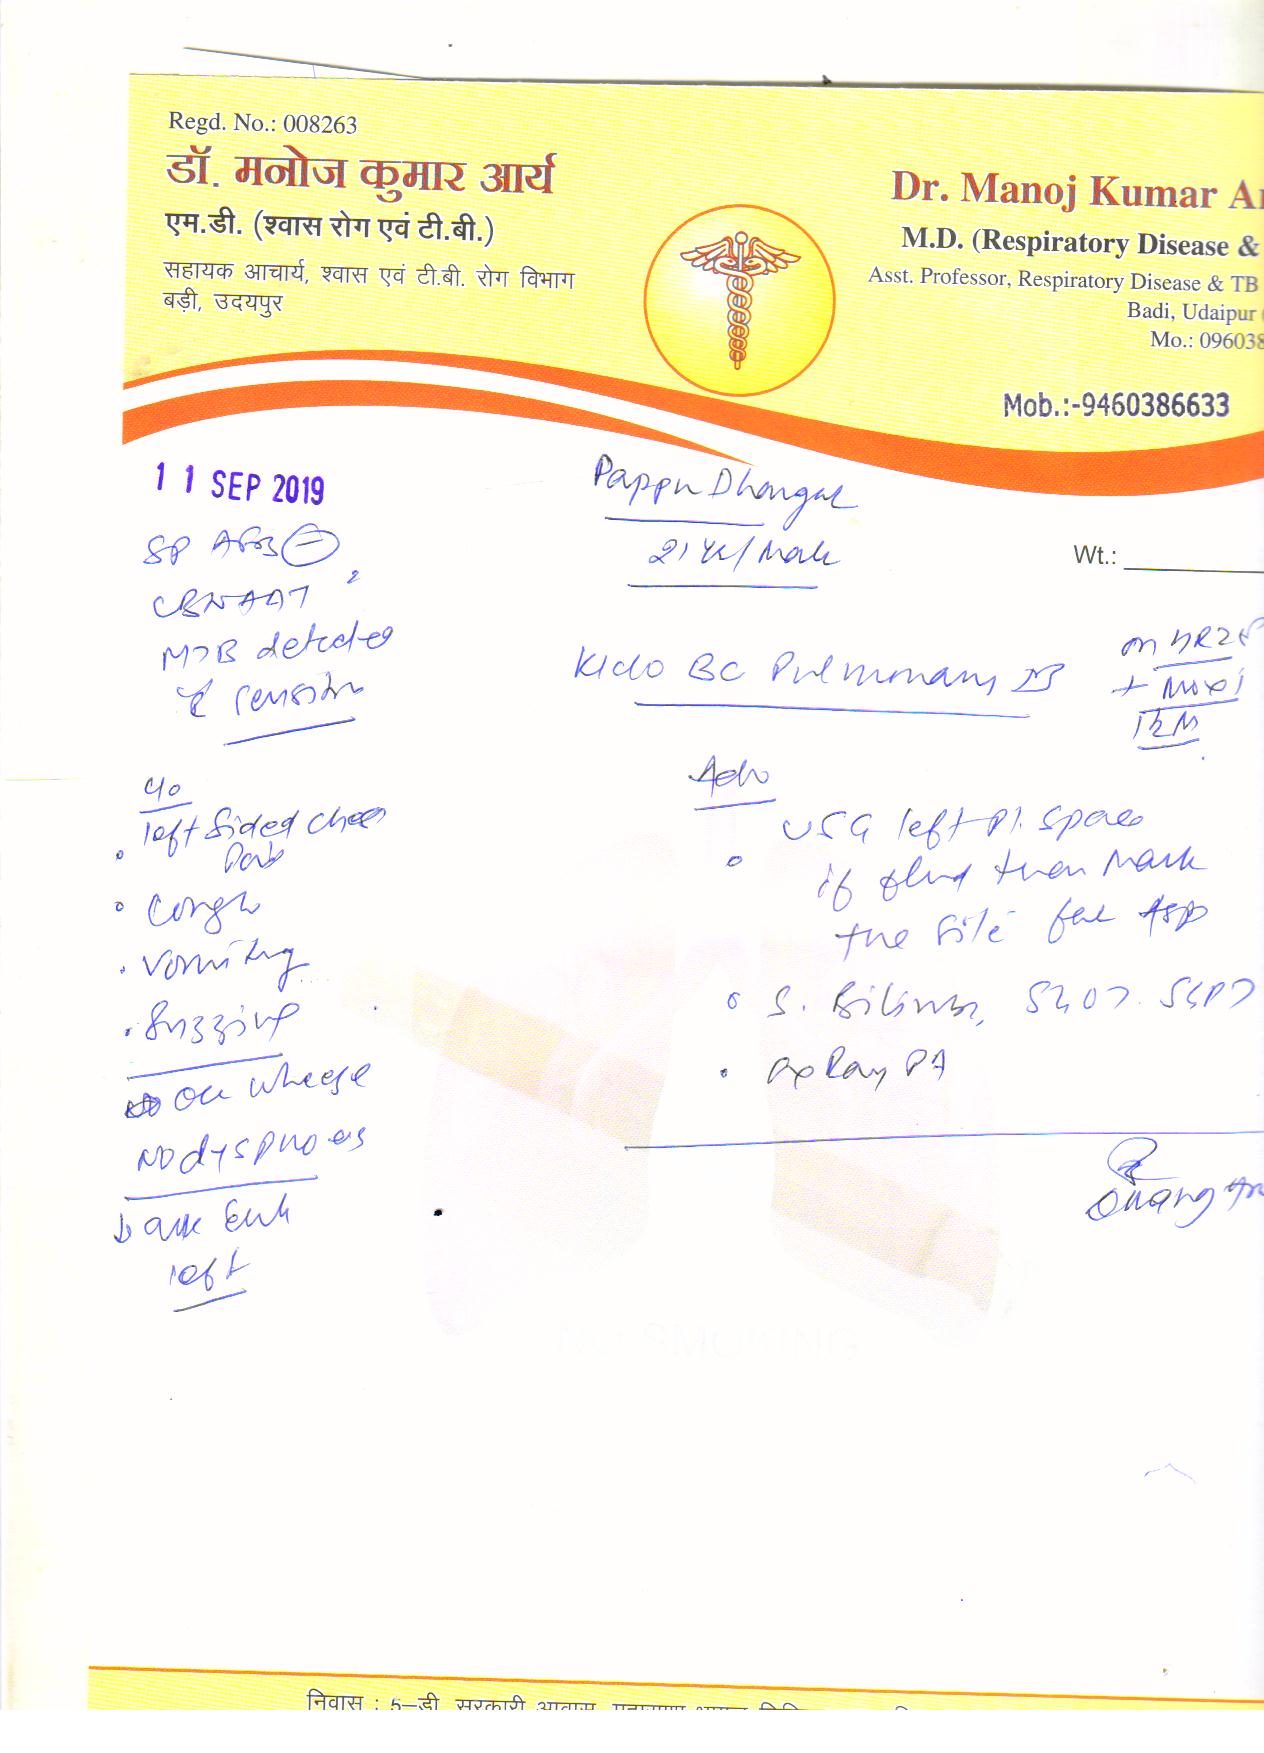 Regd. No.: 008263
डॉ. मनोज कुमार आर्य
एम.डी. (श्वास रोग एवं टी.बी.)
सहायक आचार्य, श्वास एवं टी.बी. रोग विभाग
बड़ी, उदयपुर
Dr. Manoj Kumar
M.D. (Respiratory Disease &
Asst. Professor, Respiratory Disease & TB
Badi, Udaipur
Mo.: 09603
Mob.:-9460386633
11 SEP 2019
Pappu
21 Yr/Male
Wt.:
SP AFB ⊖
CBNAAT
MTB detected
K/c/o BC Pulmonary TB
on HRZE
+ Moxi
c/o
left sided chest
Pain
Cough
Vomiting
occ wheeze
NO dyspnoea
left
Adv
USG left Pl. space
if fluid then Mark
the site for Asp
S. Bilirubin, SGOT. SGPT
X Ray PA
NO SMOKING
निवास : 5–डी, सरकारी आवास,